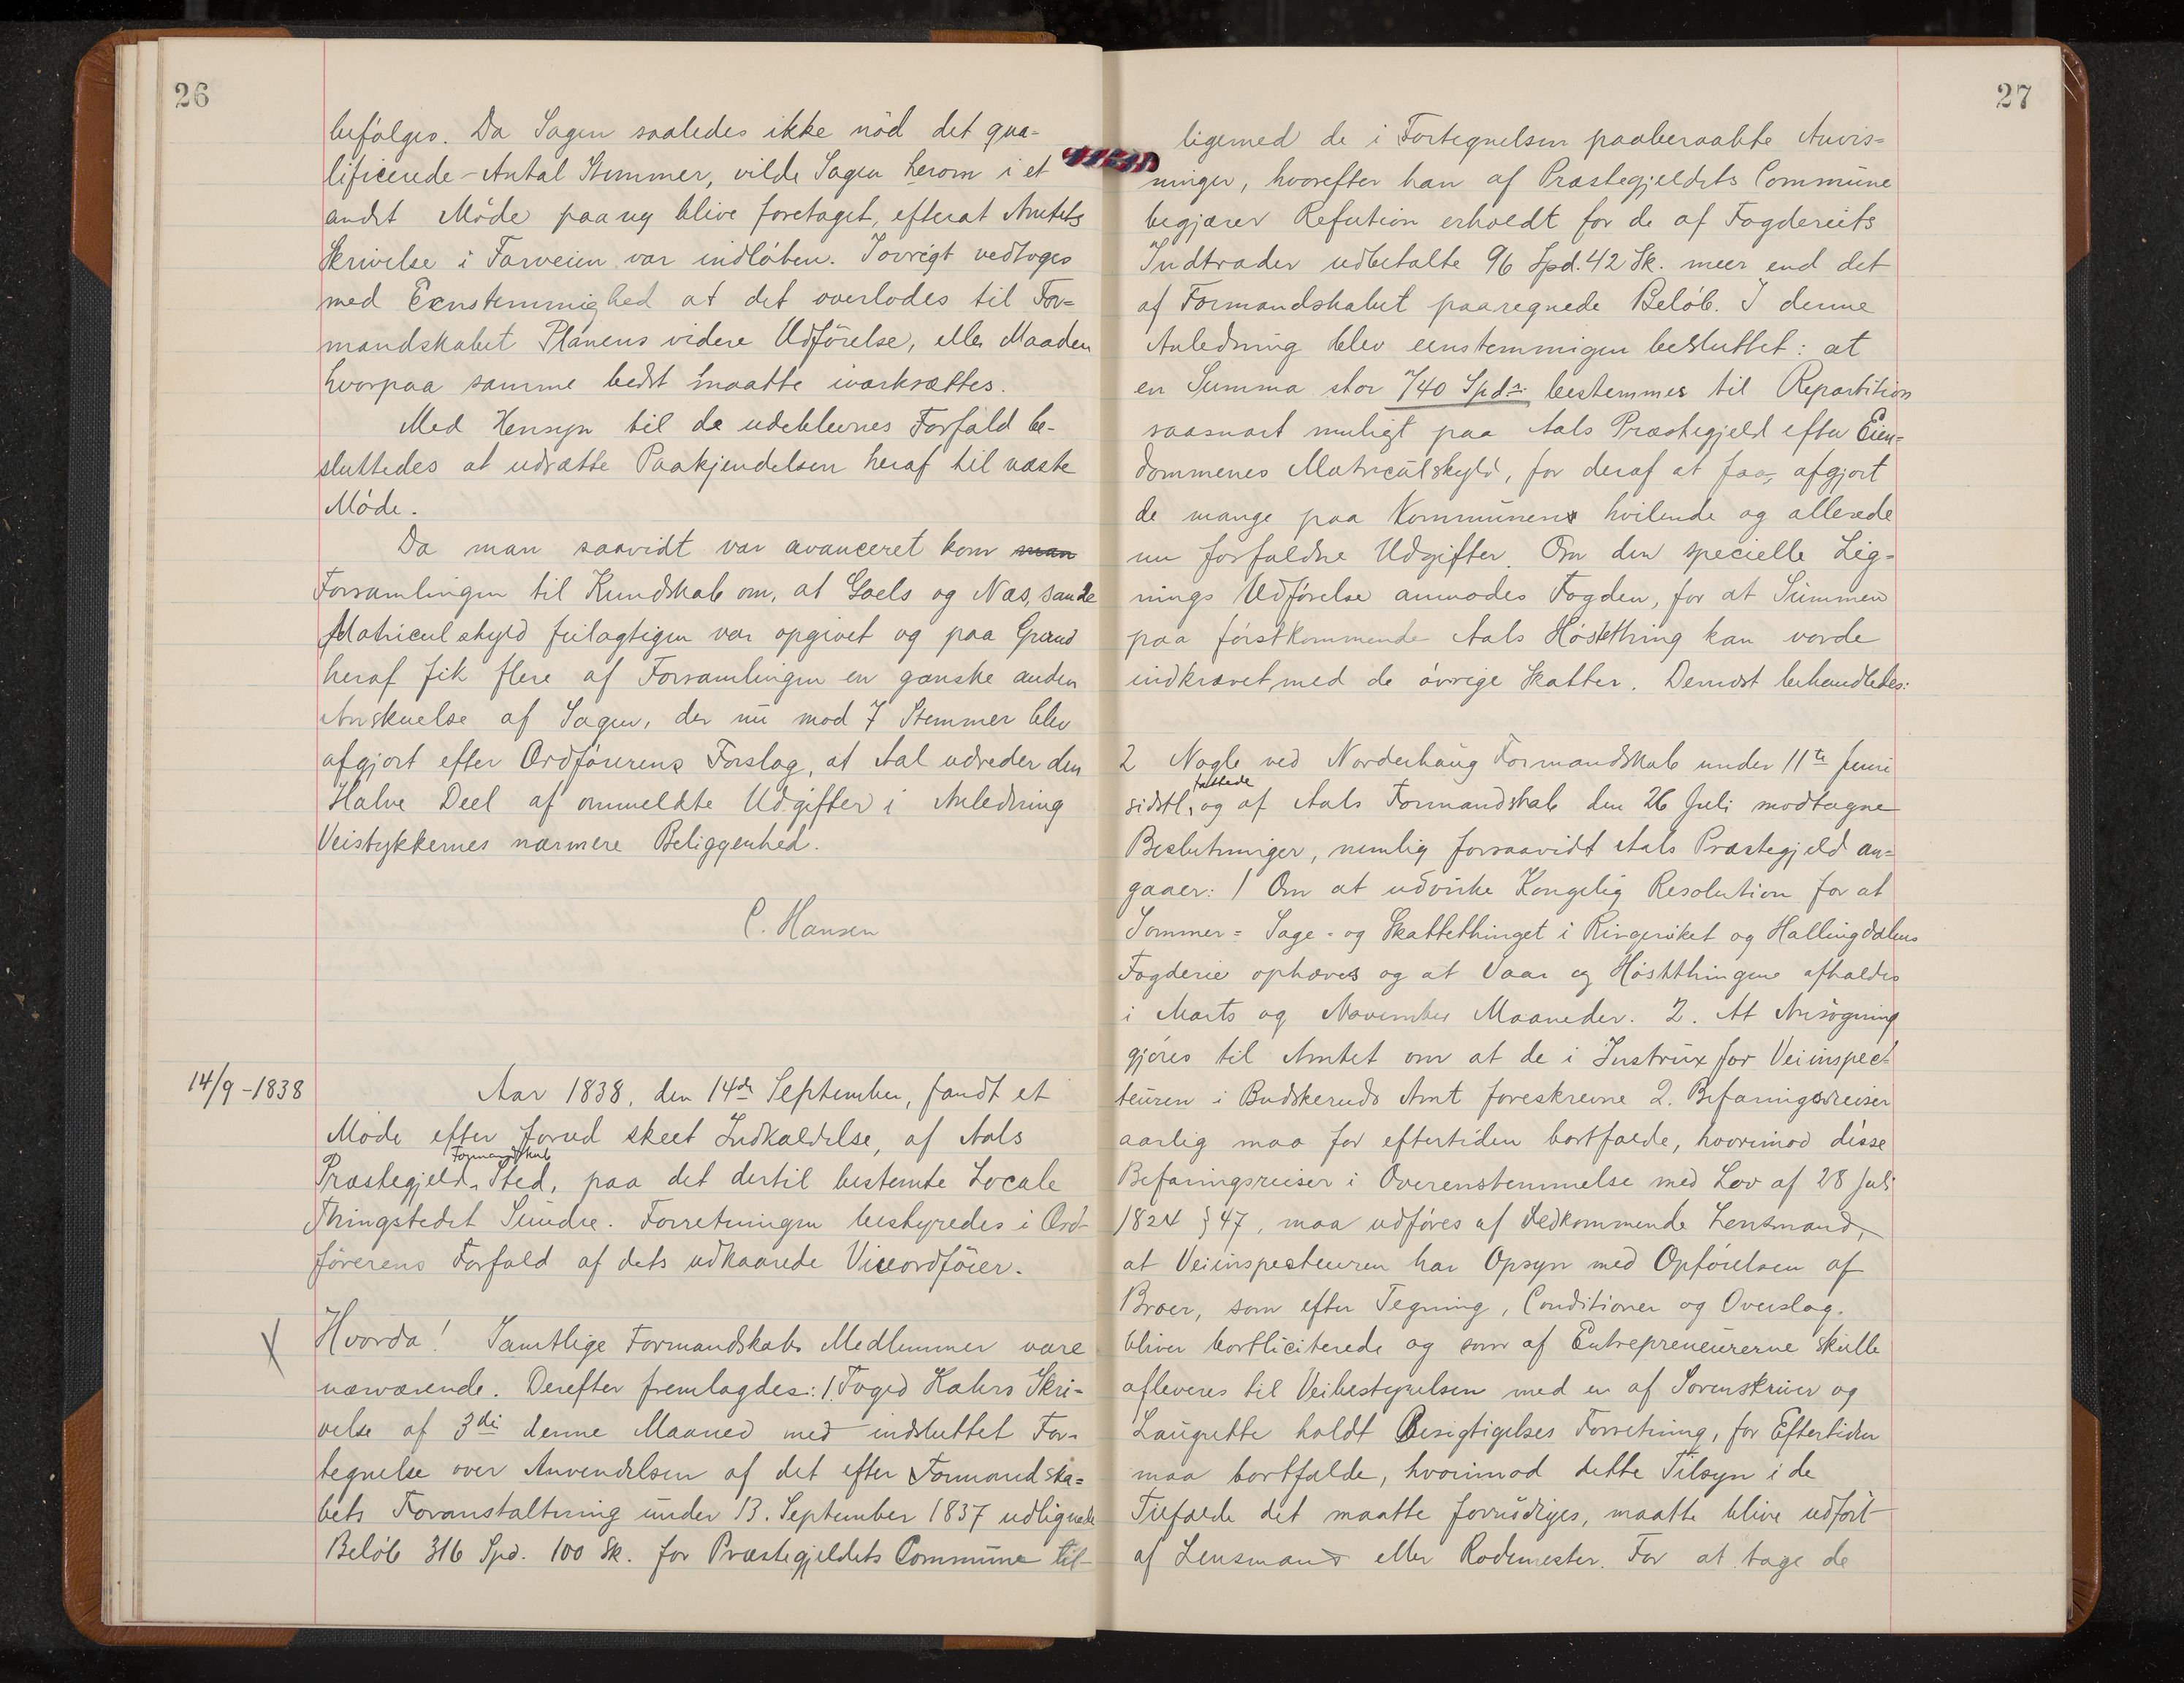 26
befølges. Da Sagen saaledes ikke nød det qua-
lificerede Antal Stemmer, vilde Sagen herom i et
andet Møde paany blive foretaget, efterat Amtets
Skrivelse i Farveien var indløben. Iøvrigt vedtoges
med Eenstemmighed at det overlodes til For-
mandskabet Planens videre Udførelse, eller Maaden
hvorpaa samme bedst maatte iværksættes.
Med Hensyn til de udeblevnes Forfald be-
sluttedes at udsætte Paakjendelsen heraf til næste
Møde.
Da man saavidt var avanceret kom man
Forsamlingen til Kundskab om, at Goels og Næs, sande
Matriculskyld feilagtigen var opgivet og paa Grund
heraf fik flere af Forsamlingen en ganske anden
Anskuelse af Sagen, der nu mod 7 Stemmer blev
afgjort efter Ordførerens Forslag, at Aal udreder den
Halve Deel af ommeldte Udgifter i Anledning
Veistykkernes nærmere Beliggenhed.
C. Hansen
14/9-1838
Aar 1838, den 14de September, fandt et
Møde efter forud skeet Indkaldelse, af Aals
Præstegjelds Formandskab Sted, paa det dertil bestemte Locale
Thingstedet Sundre. Forretningen bestyredes i Ord-
førerens Forfald af dets udkaarede Viceordfører.
X
Hvorda! Samtlige Formandskabs Medlemmer vare
nærværende. Derefter fremlagdes: 1. Foged Kahrs Skri-
velse af 3die denne Maaned med indsluttet For-
tegnelse over Anvendelsen af det efter Formandska-
bets Foranstaltning under 13. September 1837 udlignede
Beløb 316 Spd. 100 Sk. for Præstegjeldets Commune til-
27
ligemed de i Fortegnelsen paaberaabte Anvis-
ninger, hvorefter han af Præstegjeldets Commune
begjærer Refution erholdt for de af Fogderiets
Indtrader udbetalte 96 Spd. 42 Sk. meer end det
af Formandskabet paaregnede Beløb. I denne
Anledning blev eenstemmigen besluttet: at
en Summa stor 740 Spdr. bestemmes til Repartition
saasnart muligt paa Aals Præstegjeld efter Eien-
dommenes Matriculskyld, for deraf at faa afgjort
de mange paa Kommunens hvilende og allerede
nu forfaldne Udgifter. Om den specielle Lig-
nings Udførelse anmodes Fogden, for at Summen
paa førstkommende Aals Høstthing kan vorde
indkrævet med de øvrige Skatter. Dernæst behandledes:
2 Nogle ved Norderhaug Formandskab under 11te Juni
sidstl. fattede og af Aals Formandskab den 26 Juli modtagne
Beslutninger, nemlig forsaavidt Aals Præstegjeld an-
gaaer: 1 Om at udvirke Kongelig Resolution for at
Sommer- Sage- og Skattethinget i Ringeriket og Hallingdalens
Fogderie ophæves og at Vaar og Høstthingene afholdes
i Marts og November Maaneder. 2. At Ansøgning
gjøres til Amtet om at de i Instrux for Veiinspec-
teuren i Budskeruds Amt foreskrevne 2. Befaringsreiser
aarlig maa for eftertiden bortfalde, hvorimod disse
Befaringsreiser i Overenstemmelse med Lov af 28 Juli
1824 § 47, maa udføres af Vedkommende Lensmand,
at Veiinspecteuren har Opsyn med Opførelsen af
Broer, som efter Tegning, Conditioner og Overslag.
bliver bortliciterede og som af Entrepreneurerne skulle
afleveres til Veibestyrelsen med en af Sorenskriver og
Laugrette holdt Besigtigelses Forretning, for Eftertiden
maa bortfalde, hvorimod dette Tilsyn i de
Tilfælde det maatte fornødiges, maatte blive udført
af Lensmand eller Rodemester. For at tage de